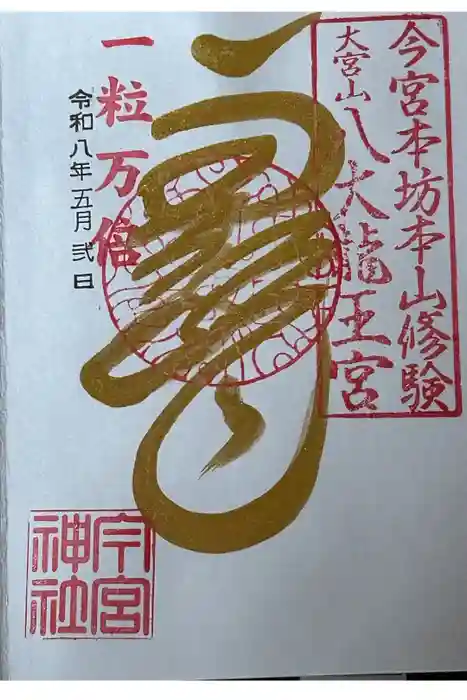 今宮本坊本山修験
大宮山八大龍王宮
一粒万倍
令和八年五月弐日
今宮
神社